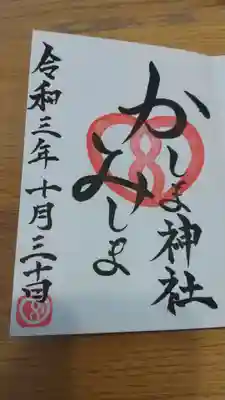 かしま神社
みしま
令和三年十月三十日